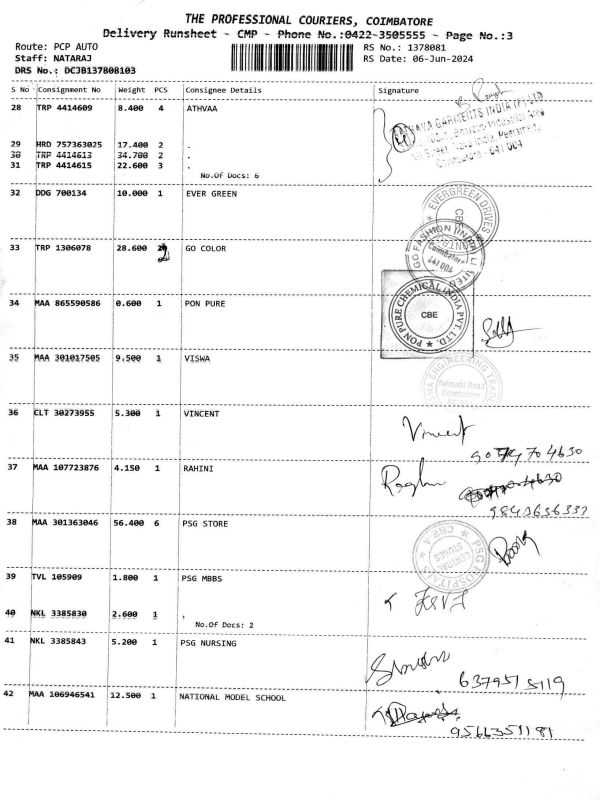 THE PROFESSIONAL COURIERS, COIMBATORE
Delivery Runsheet - CMP - Phone No.:0422-3505555 - Page No.:3
Route: PCP AUTO RS No.: 1378081
Staff: NATARAJ RS Date: 06-Jun-2024
DRS No.: DCJB137808103
S No Consignment No Weight PCS Consignee Details Signature
28 TRP 4414609 8.400 4 ATHVAA
29 HRD 757363025 17.400 2 .
30 TRP 4414613 34.700 2 .
31 TRP 4414615 22.600 3 .
No.Of Docs: 6
GARMENTS INDIA (P) LTD
Coimbatore - 641 004
32 DDG 700134 10.000 1 EVER GREEN
EVERGREEN DRIVES
CBE
33 TRP 1306078 28.600 2 GO COLOR
GO FASHION (INDIA) LIMITED
Coimbatore
641 004
34 MAA 865590586 0.600 1 PON PURE
PON PURE CHEMICAL INDIA PVT. LTD.
CBE
35 MAA 301017505 9.500 1 VISWA
ENGINEERING
Avinashi Road
Coimbatore
36 CLT 30273955 5.300 1 VINCENT
Vincent
37 MAA 107723876 4.150 1 RAHINI
Raghu
38 MAA 301363046 56.400 6 PSG STORE
PSG HOSPITALS
CENTRAL
STORES
CBE
39 TVL 105909 1.800 1 PSG MBBS
40 NKL 3385830 2.600 1 .
No.Of Docs: 2
41 NKL 3385843 5.200 1 PSG NURSING
6379515119
42 MAA 106946541 12.500 1 NATIONAL MODEL SCHOOL
9566351181